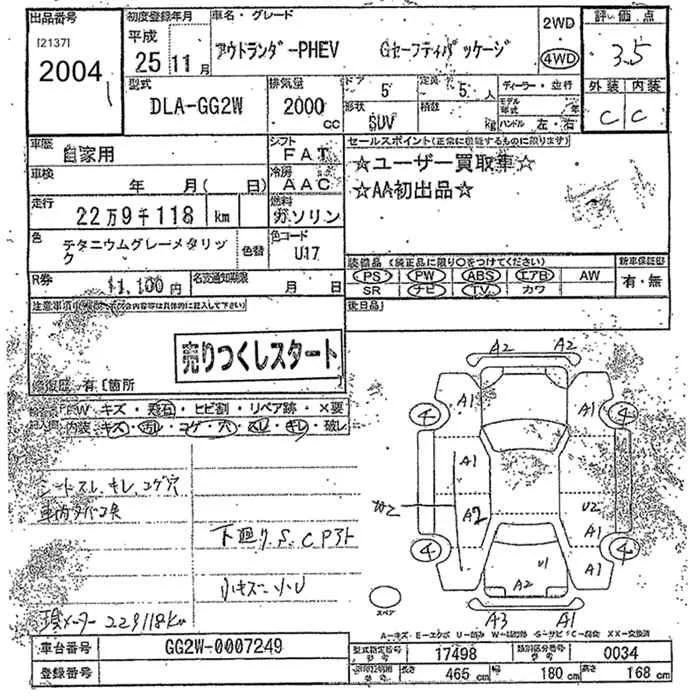 出品番号
[2137]
2004
初度登録年月
平成
25 11月
車名・グレード
アウトランダーPHEV Gセーフティパッケージ
2WD
4WD
評価点
3.5
外装 内装
C C
型式
DLA-GG2W
排気量
2000 cc
ドア 5
定員 5 人
形状
SUV
積載
kg
ディーラー・並行
モデル年式 年
ハンドル 左・右
車歴
自家用
シフト
FAT
車検
年 月( 日)
冷房
AAC
走行
22万9千118 km
燃料
ガソリン
色
チタニウムグレーメタリック
色替
色コード
U17
セールスポイント(正常に機能するものに限ります)
☆ユーザー買取車☆
☆AA初出品☆
装備品 (純正品に限り○をつけてください)
PS PW ABS エアB AW
SR ナビ TV カワ
新車保証書
有・無
R券
11,100円
名変通知期限
月 日
後日品
注意事項
売りつくしスタート
修復歴 有 [箇所
FW キズ・飛石・ヒビ割・リペア跡・×要
内装 キズ・汚れ・コゲ・穴・スレ・キレ・破レ
シートスレ、キレ、コゲ穴
車内タバコ臭
下廻り S.C Pアト
小キズ 小U
現メーター 229118km
A2 A2
A1 A1
4 4
A1
W2
A2 U2
A1
4 4
A1
U1
A2
スペア
A3 A1
A-キズ E-エクボ U-凹み W-補修跡 S-サビ C-腐食 XX-交換済
車台番号
GG2W-0007249
型式指定番号
17498
類別区分番号
0034
登録番号
長さ 465 cm 幅 180 cm 高さ 168 cm